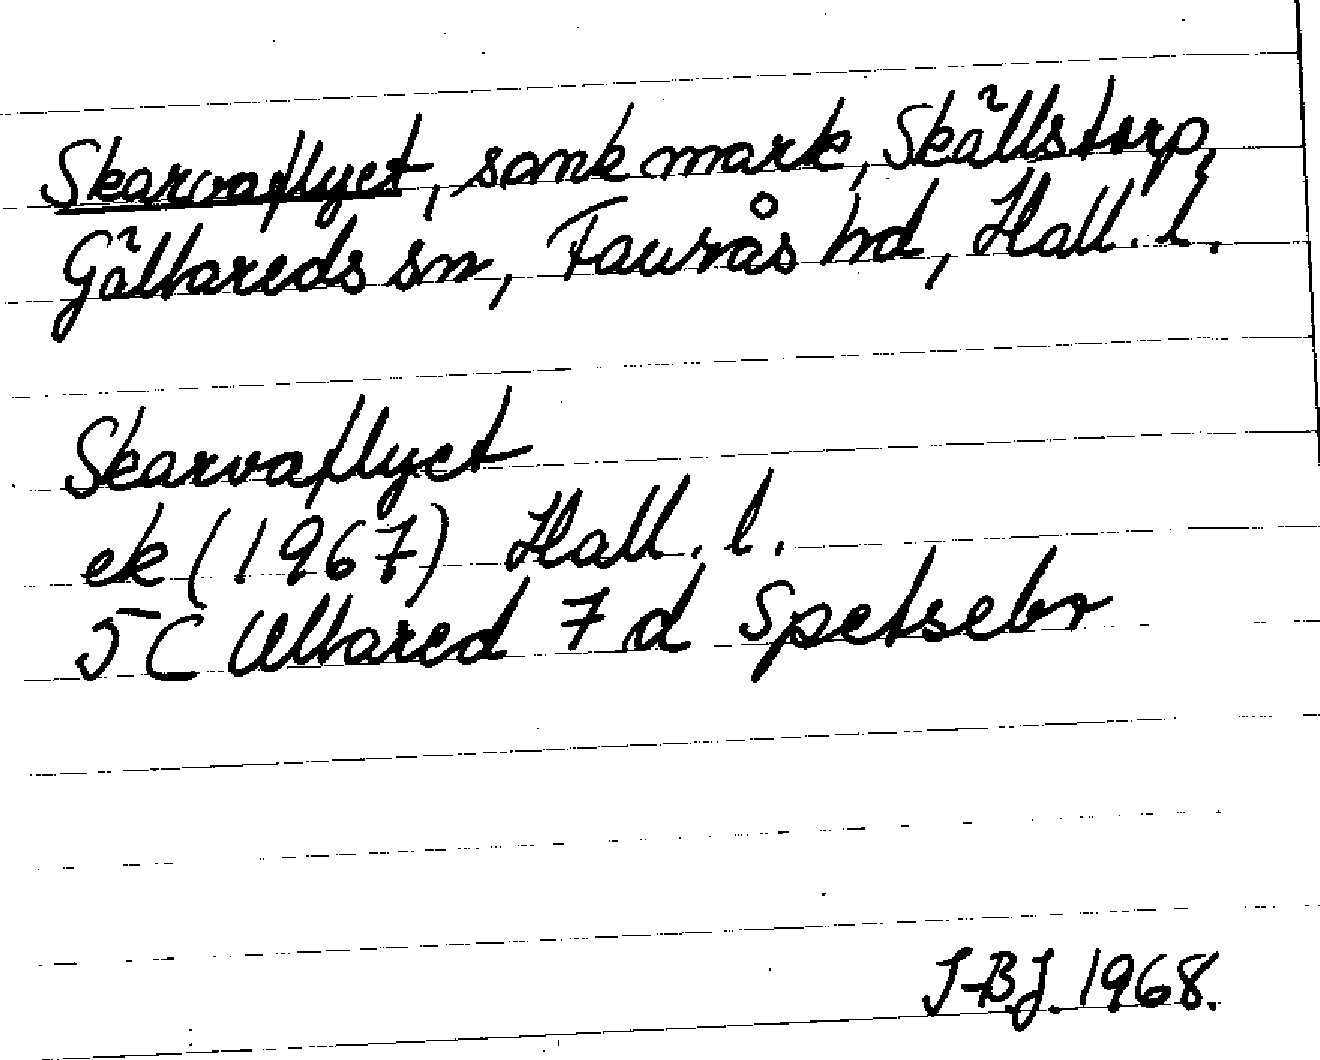 Skarvaflyet, sank mark, Skällstorp,
Gällareds sn, Faurås hd, Hall. l.
Skarvaflyet
ek (1967) Hall. l.
5C Ullared 7 d Spetsebr
J-B.J. 1968.